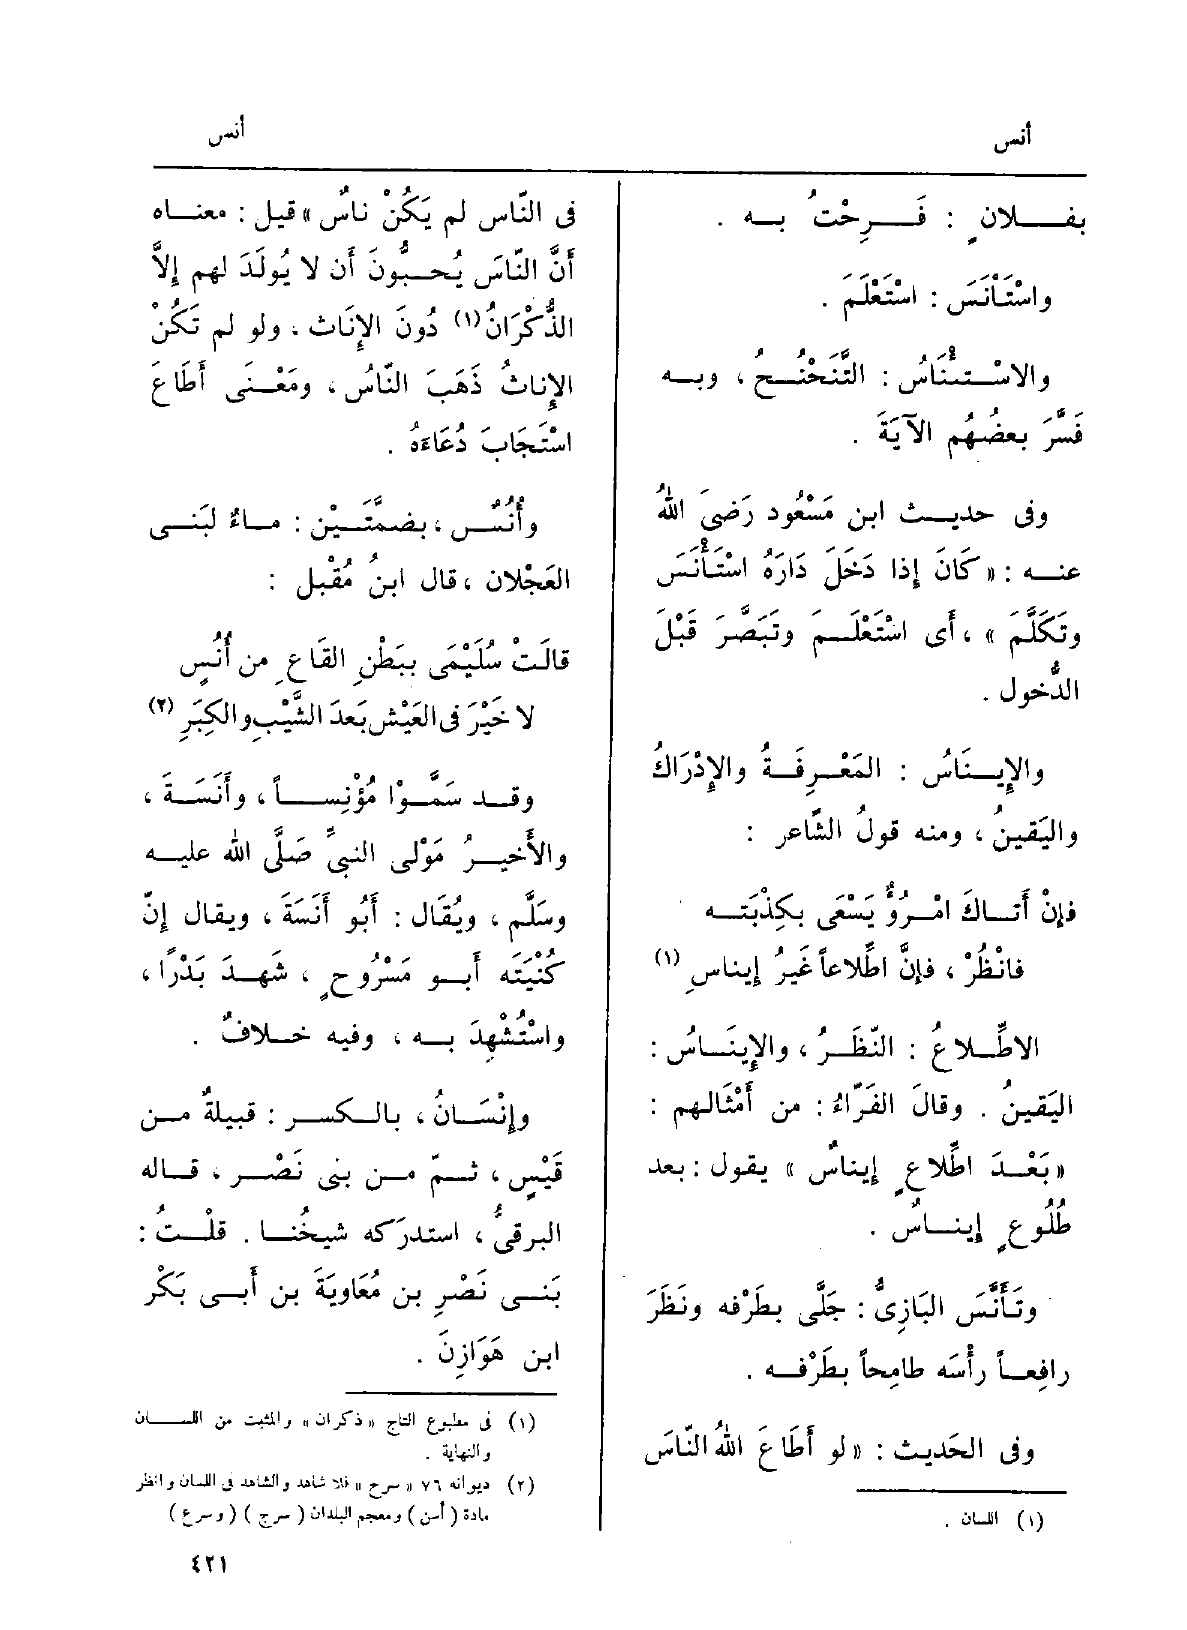 أنس
أنس
بفــلانٍ : فَــرِحْتُ بــه .
واسْتَأْنَسَ : اسْتَعْلَمَ .
والاسْــتِئْنَاسُ : التَّنَحْنُــحُ ، وبــه
فَسَّرَ بعضُهُم الآيَةَ .
وفى حديــث ابن مَسْعُود رَضِىَ اللهُ
عنــه : « كَانَ إذا دَخَلَ دَارَهُ اسْتَأْنَسَ
وتَكَلَّمَ » ، أى اسْتَعْلَــمَ وتَبَصَّرَ قَبْلَ
الدُّخول .
والإينــاسُ : المَعْــرِفَــةُ والإدْرَاكُ
واليَقينُ ، ومنه قولُ الشّاعر :
فإنْ أَتــاكَ امْــرُؤٌ يَسْعَى بكِذْبَتــه
فانْظُرْ ، فإنَّ اطِّلاعاً غَيرُ إيناسِ (١)
الاطِّــلاعُ : النَّظَــرُ ، والإينَــاسُ :
اليَقينُ . وقالَ الفَرّاءُ : من أَمْثالهم :
« بَعْــدَ اطِّلاعٍ إيناسٌ » يقول : بعد
طُلُوعٍ إينــاسٌ .
وتَأَنَّسَ البَازِىُّ : جَلَّى بطَرْفه ونَظَرَ
رافِعــاً رأْسَه طامِحاً بطَرْفــه .
وفى الحَديــث : « لو أَطَاعَ اللهُ النّاسَ
(١) اللسان .
فى النّاس لم يَكُنْ ناسٌ » قيل : معنــاه
أَنَّ النّاسَ يُحــبُّونَ أَن لا يُولَدَ لهم إلاَّ
الذُّكْرَانُ (١) دُونَ الإنَاث ، ولو لم تَكُنْ
الإناثُ ذَهَبَ النّاسُ ، ومَعْــنَى أَطَاعَ
اسْتَجَابَ دُعَاءَهُ .
وأُنُسٌ ، بضمَّتَــيْن : مــاءٌ لبَنــى
العَجْلان ، قال ابنُ مُقْبل :
قالَتْ سُلَيْمَى ببَطْنِ القَاعِ من أُنُسٍ
لا خَيْرَ فى العَيْش بَعدَ الشَّيْبِ والكِبَرِ (٢)
وقــد سَمَّــوْا مُؤْنِســاً ، وأَنَسَــةَ ،
والأَخيــرُ مَوْلَى النبىِّ صَلَّى الله عليــه
وسَلَّم ، ويُقَال : أَبُو أَنَسَةَ ، ويقال إنّ
كُنْيَتَه أَبــو مَسْرُوحٍ ، شَهــدَ بَدْرًا ،
واسْتُشْهِدَ بــه ، وفيه خــلافٌ .
وإنْسَــانُ ، بالــكسر : قبيلةٌ مــن
قَيْسٍ ، ثــمّ مــن بنى نَصْــر ، قــاله
البرقىُّ ، استدرَكه شيخُنــا . قلْــتُ :
بَنــى نَصْرِ بن مُعَاويَةَ بن أَبــى بَكْر
ابن هَوَازِنَ .
(١) فى مطبوع التاج « ذكران » والمثبت من اللســان
والنهاية .
(٢) ديوانه ٧٦ « سرح » فلا شاهد والشاهد فى اللسان وانظر
مادة ( أسن ) ومعجم البلدان ( سرح ) ( وسرع )
٤٢١